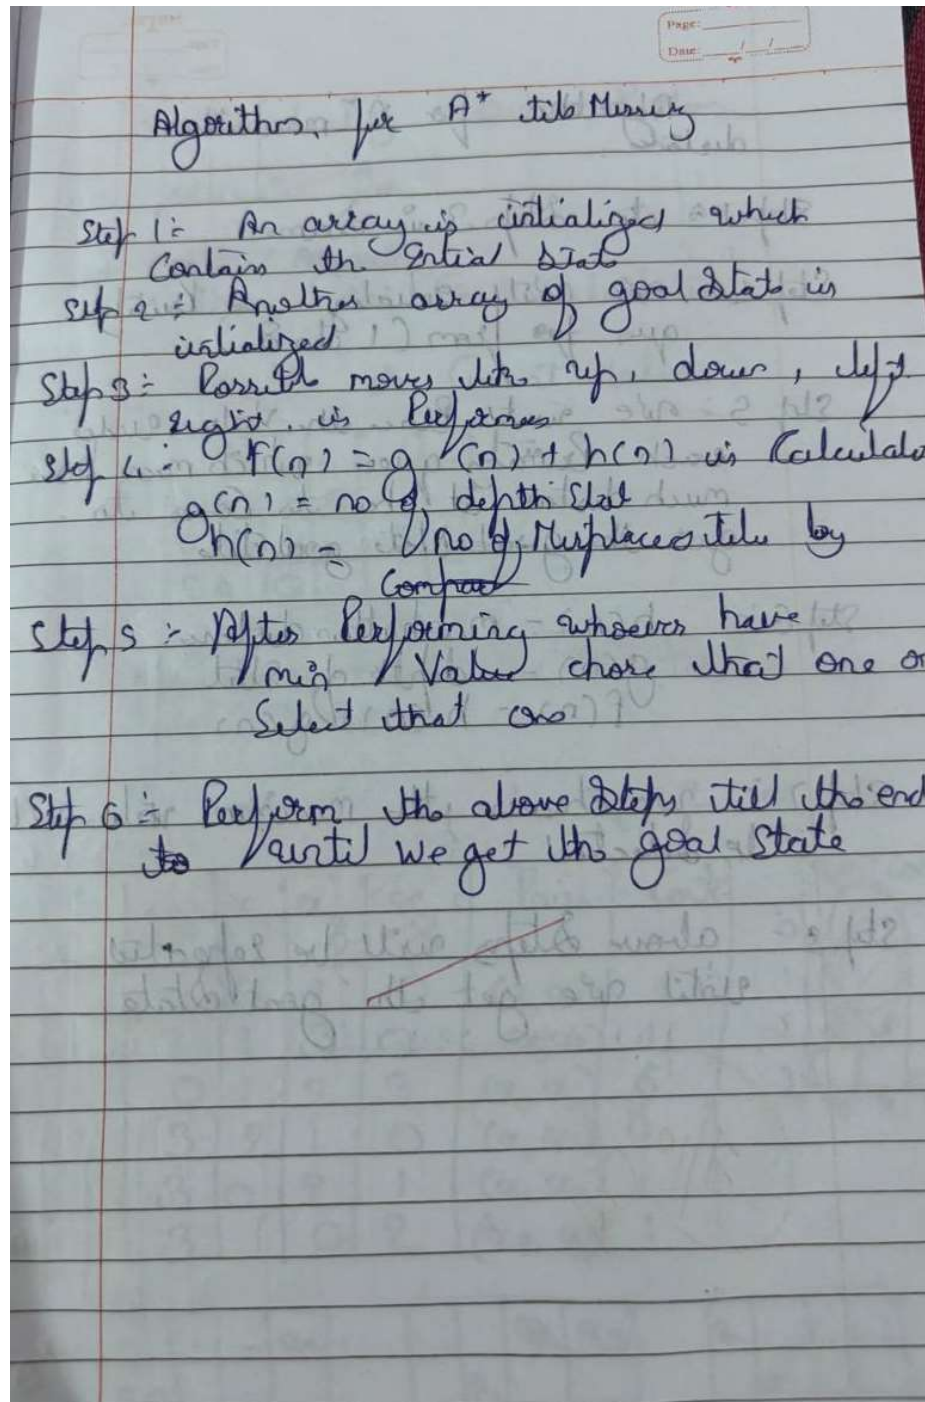 Page:
Date: / /
Algorithm for A* tile Missing
Step 1:- An array is intialized which
Contains the Intial State
Step 2:- Another array of goal State is
intialized
Step 3:- Possible moves like up, down, left
right, is Performes
Step 4:- F(n) = g(n) + h(n) is Calculate
g(n) = no of depth Stat
h(n) = no of Misplaces tile by
Compared
Step 5:- After Performing whoever have
min Value chose that one or
Select that one
Step 6:- Perform the above Steps till the end
to until we get the goal State